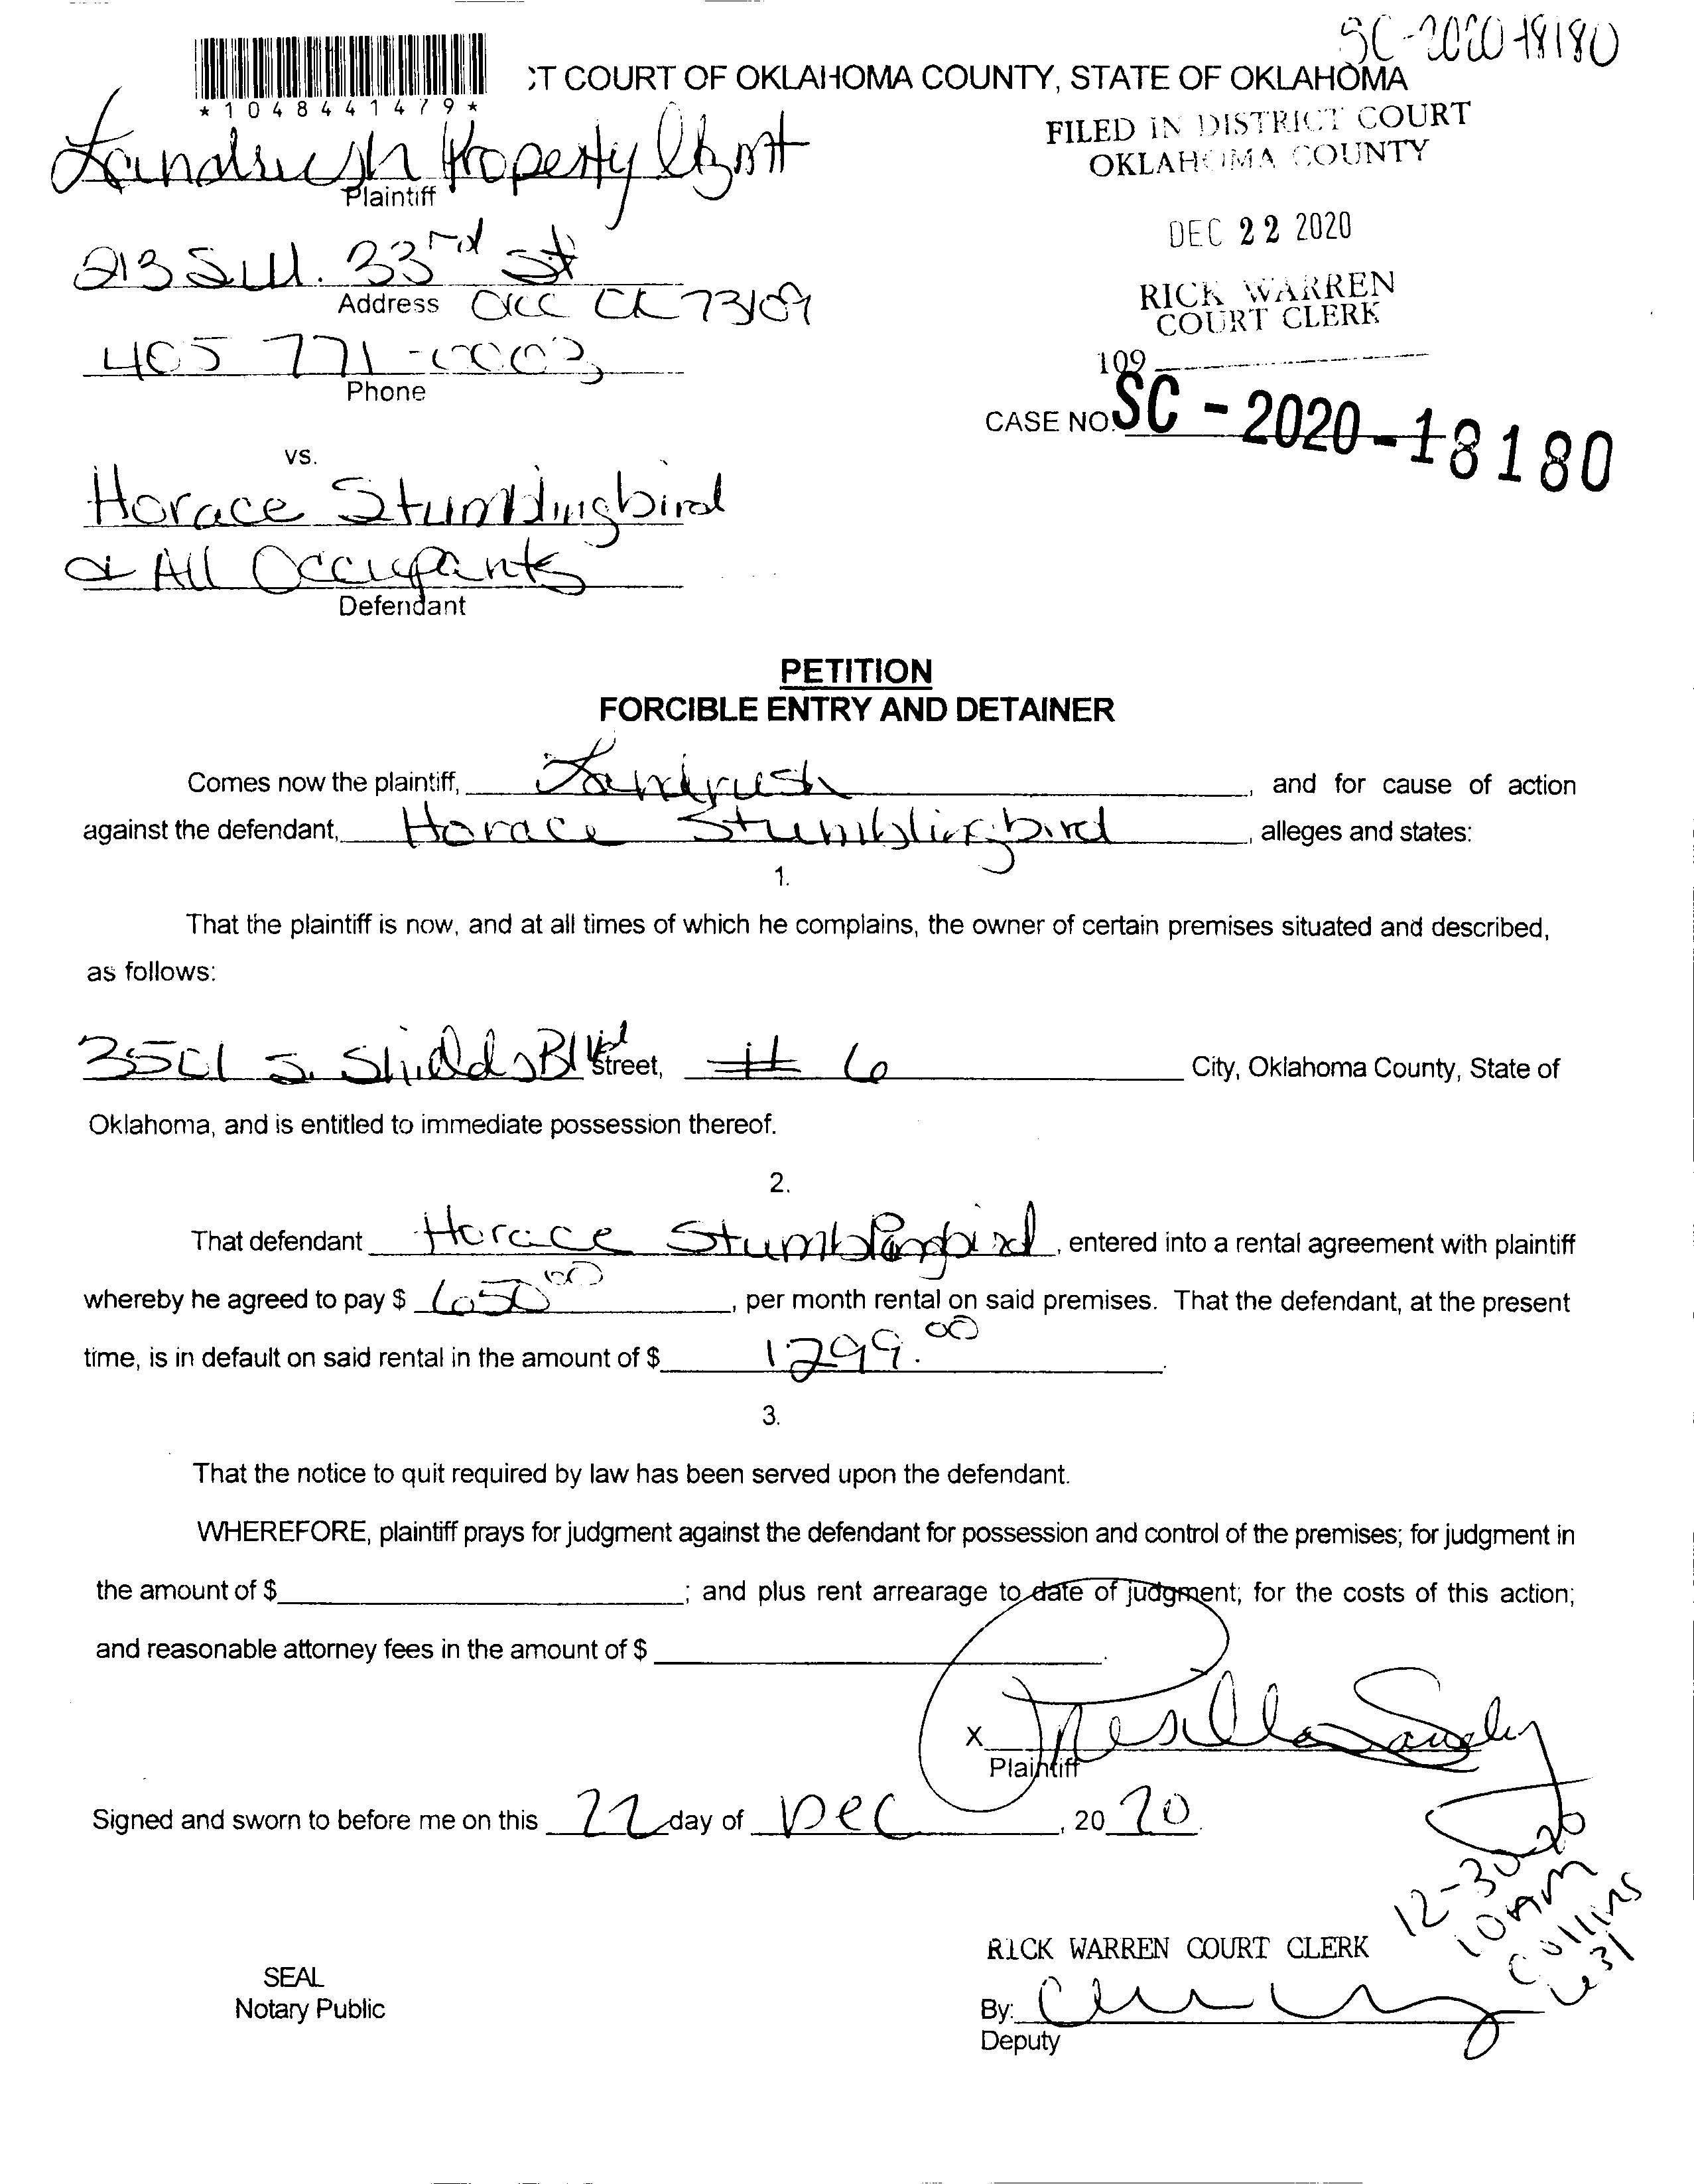 SC-2020-18180
*1048441479*
CT COURT OF OKLAHOMA COUNTY, STATE OF OKLAHOMA
FILED IN DISTRICT COURT
OKLAHOMA COUNTY
Landrush Property Mgmt
Plaintiff
DEC 22 2020
213 S.W. 33rd St
Address OKC OK 73109
RICK WARREN
COURT CLERK
405 771-0003
Phone
109
CASE NO. SC-2020-18180
vs.
Horace Stumblingbird
& All Occupants
Defendant
PETITION
FORCIBLE ENTRY AND DETAINER
Comes now the plaintiff, Landrush, and for cause of action
against the defendant, Horace Stumblingbird, alleges and states:
1.
That the plaintiff is now, and at all times of which he complains, the owner of certain premises situated and described,
as follows:
3501 S. Shields Blvd Street, # 6 City, Oklahoma County, State of
Oklahoma, and is entitled to immediate possession thereof.
2.
That defendant Horace Stumblingbird, entered into a rental agreement with plaintiff
whereby he agreed to pay $ 650 00, per month rental on said premises. That the defendant, at the present
time, is in default on said rental in the amount of $ 1299.00.
3.
That the notice to quit required by law has been served upon the defendant.
WHEREFORE, plaintiff prays for judgment against the defendant for possession and control of the premises; for judgment in
the amount of $ ; and plus rent arrearage to date of judgment; for the costs of this action;
and reasonable attorney fees in the amount of $ .
X
Plaintiff
Signed and sworn to before me on this 22 day of Dec, 20 20.
12-30-20
10 AM
Collins
RICK WARREN COURT CLERK
SEAL
Notary Public
By:
Deputy